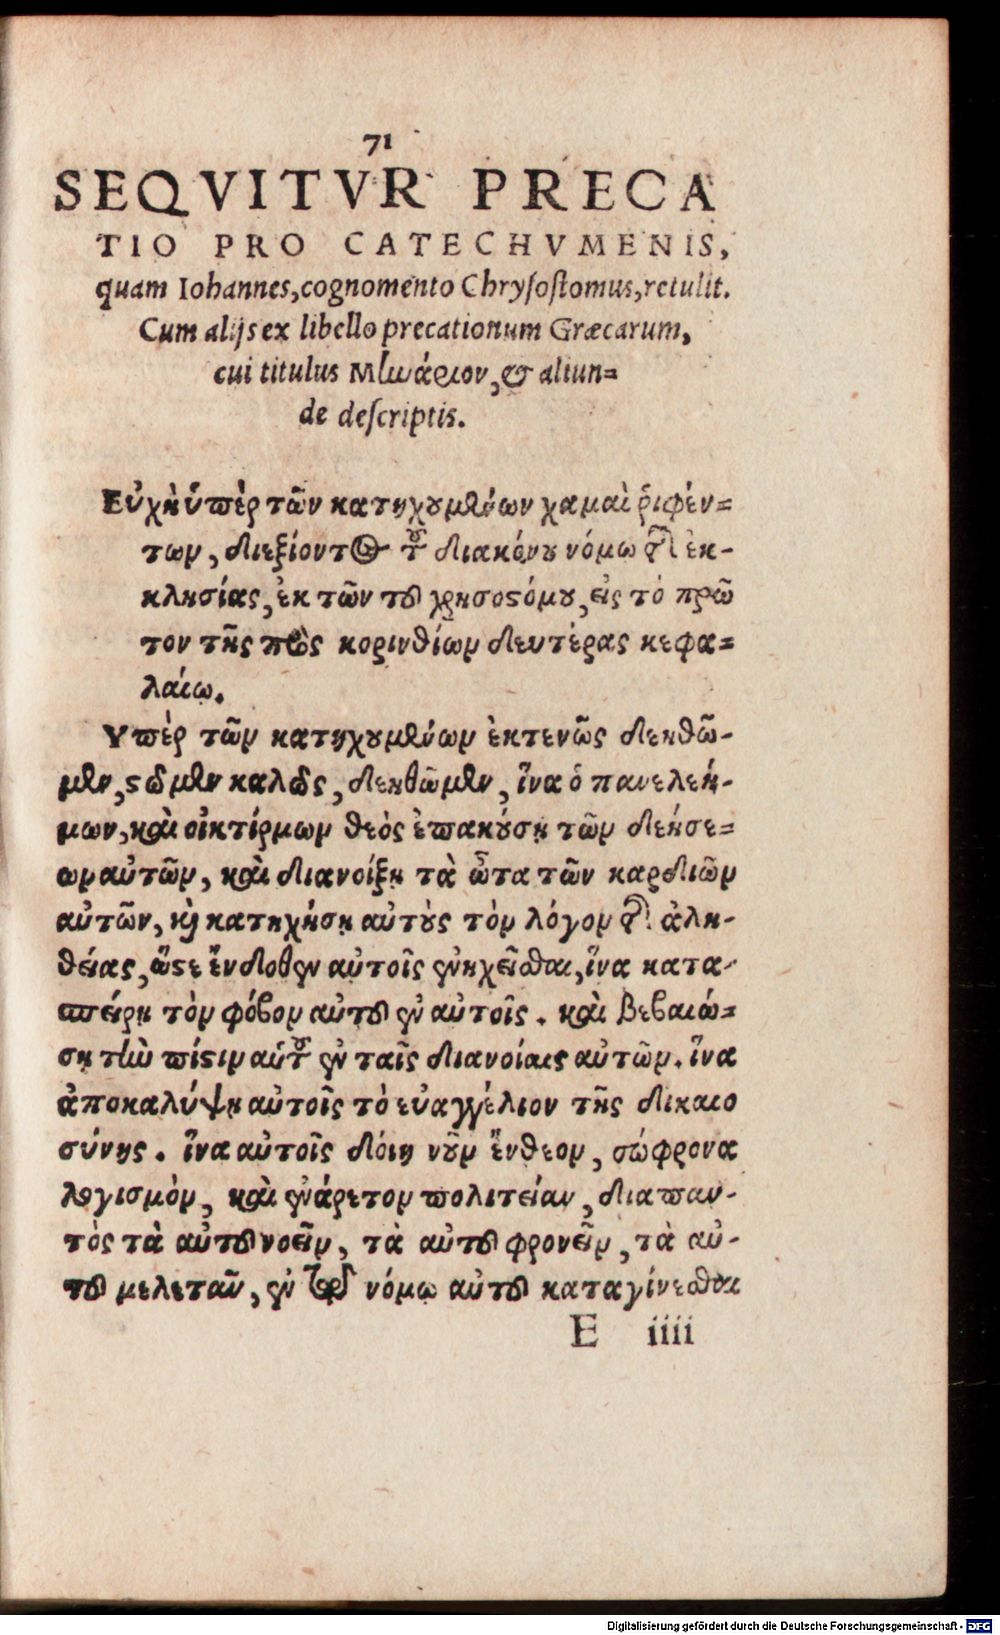 71
SEQVITVR PRECA
TIO PRO CATECHVMENIS,
quam Iohannes, cognomento Chrysostomus, retulit.
Cum alijs ex libello precationum Græcarum,
cui titulus Μηνάριον, & aliun=
de descriptis.
Εὐχὴ ὑπὲρ τῶν κατηχουμένων χαμαὶ ῥιφέν=
των, διεξίοντος τοῦ διακόνου νόμω τῆς ἐκ-
κλησίας, ἐκ τῶν τοῦ χρησοστόμου, εἰς τὸ πρῶ
τον τῆς πρὸς κορινθίων δευτέρας κεφα=
λαίω.
Υπὲρ τῶν κατηχουμένων ἐκτενῶς δεηθῶ-
μεν, στῶμεν καλῶς, δεηθῶμεν, ἵνα ὁ πανελεή-
μων, καὶ οἰκτίρμων θεὸς ἐπακούσῃ τῶν δεήσε=
ων αὐτῶν, καὶ διανοίξῃ τὰ ὦτα τῶν καρδιῶν
αὐτῶν, καὶ κατηχήσῃ αὐτοὺς τὸν λόγον τῆς ἀλη-
θείας, ὥστε ἔνδοθεν αὐτοῖς ἐνηχεῖσθαι, ἵνα κατα-
σπείρῃ τὸν φόβον αὐτοῦ ἐν αὐτοῖς. καὶ βεβαιώ=
σῃ τὴν πίστιν αὐτοῦ ἐν ταῖς διανοίαις αὐτῶν. ἵνα
ἀποκαλύψῃ αὐτοῖς τὸ εὐαγγέλιον τῆς δικαιο
σύνης. ἵνα αὐτοῖς δόιη νοῦν ἔνθεον, σώφρονα
λογισμὸν, καὶ ἐνάρετον πολιτείαν, διαπαν-
τὸς τὰ αὐτοῦ νοεῖν, τὰ αὐτοῦ φρονεῖν, τὰ αὐ-
τοῦ μελετᾶν, ἐν τῷ νόμω αὐτοῦ καταγίνεσθαι
E iiii
Digitalisierung gefördert durch die Deutsche Forschungsgemeinschaft - DFG